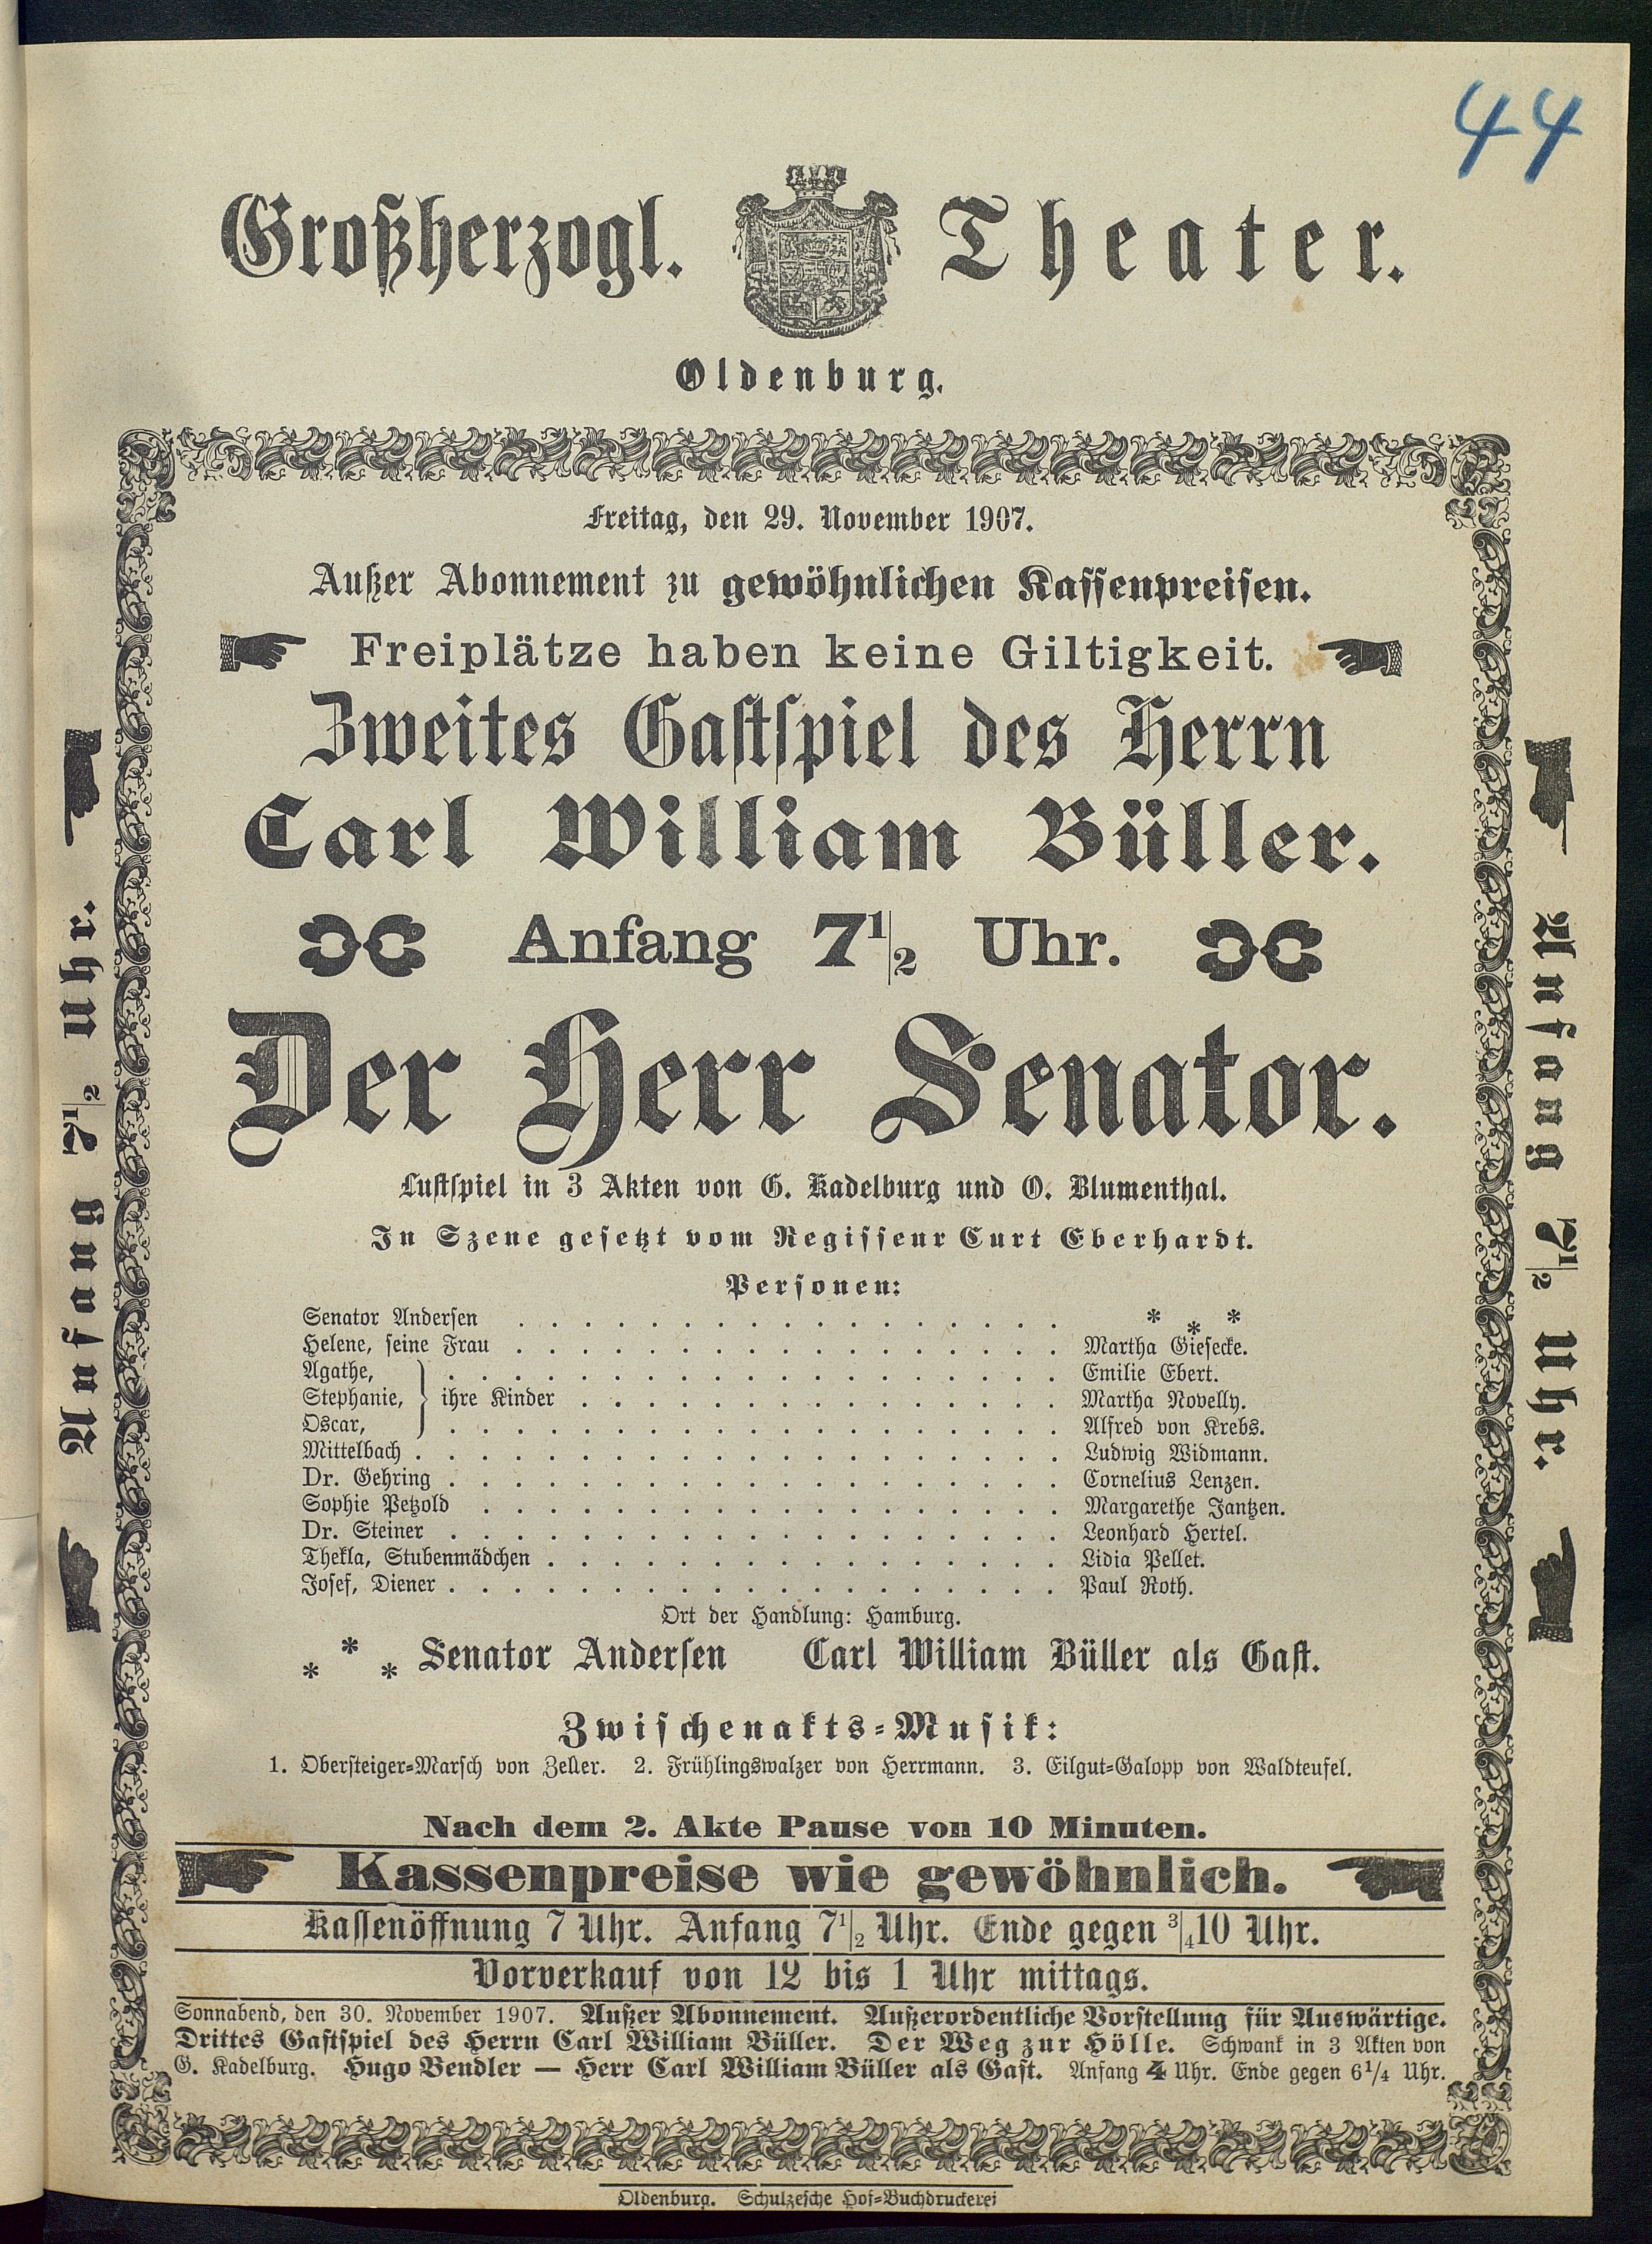 44
Großherzogl. Theater.
Oldenburg.
Freitag, den 29. November 1907.
Außer Abonnement zu gewöhnlichen Kassenpreisen.
Freiplätze haben keine Giltigkeit.
Zweites Gastspiel des Herrn
Carl William Büller.
Anfang 7 1/2 Uhr.
Der Herr Senator.
Lustspiel in 3 Akten von G. Kadelburg und O. Blumenthal.
In Szene gesetzt vom Regisseur Curt Eberhardt.
Personen:
Senator Andersen . . . . . . . . . . . . . . . . . * * *
Helene, seine Frau . . . . . . . . . . . . . . . . . Martha Giesecke.
Agathe, . . . . . . . . . . . . . . . . . . . Emilie Ebert.
Stephanie, } ihre Kinder . . . . . . . . . . . . . . . Martha Novelly.
Oscar, . . . . . . . . . . . . . . . . . . . Alfred von Krebs.
Mittelbach . . . . . . . . . . . . . . . . . . . . Ludwig Widmann.
Dr. Gehring . . . . . . . . . . . . . . . . . . . Cornelius Lenzen.
Sophie Petzold . . . . . . . . . . . . . . . . . . Margarethe Jantzen.
Dr. Steiner . . . . . . . . . . . . . . . . . . . Leonhard Hertel.
Thekla, Stubenmädchen . . . . . . . . . . . . . . . . Lidia Pellet.
Josef, Diener . . . . . . . . . . . . . . . . . . . Paul Roth.
Ort der Handlung: Hamburg.
* * * Senator Andersen Carl William Büller als Gast.
Zwischenakts-Musik:
1. Obersteiger-Marsch von Zeller. 2. Frühlingswalzer von Herrmann. 3. Eilgut-Galopp von Waldteufel.
Nach dem 2. Akte Pause von 10 Minuten.
Kassenpreise wie gewöhnlich.
Kassenöffnung 7 Uhr. Anfang 7 1/2 Uhr. Ende gegen 3/4 10 Uhr.
Vorverkauf von 12 bis 1 Uhr mittags.
Sonnabend, den 30. November 1907. Außer Abonnement. Außerordentliche Vorstellung für Auswärtige.
Drittes Gastspiel des Herrn Carl William Büller. Der Weg zur Hölle. Schwank in 3 Akten von
G. Kadelburg. Hugo Bendler — Herr Carl William Büller als Gast. Anfang 4 Uhr. Ende gegen 6 1/4 Uhr.
Oldenburg. Schulzesche Hof-Buchdruckerei
Anfang 7 1/2 Uhr.
Anfang 7 1/2 Uhr.